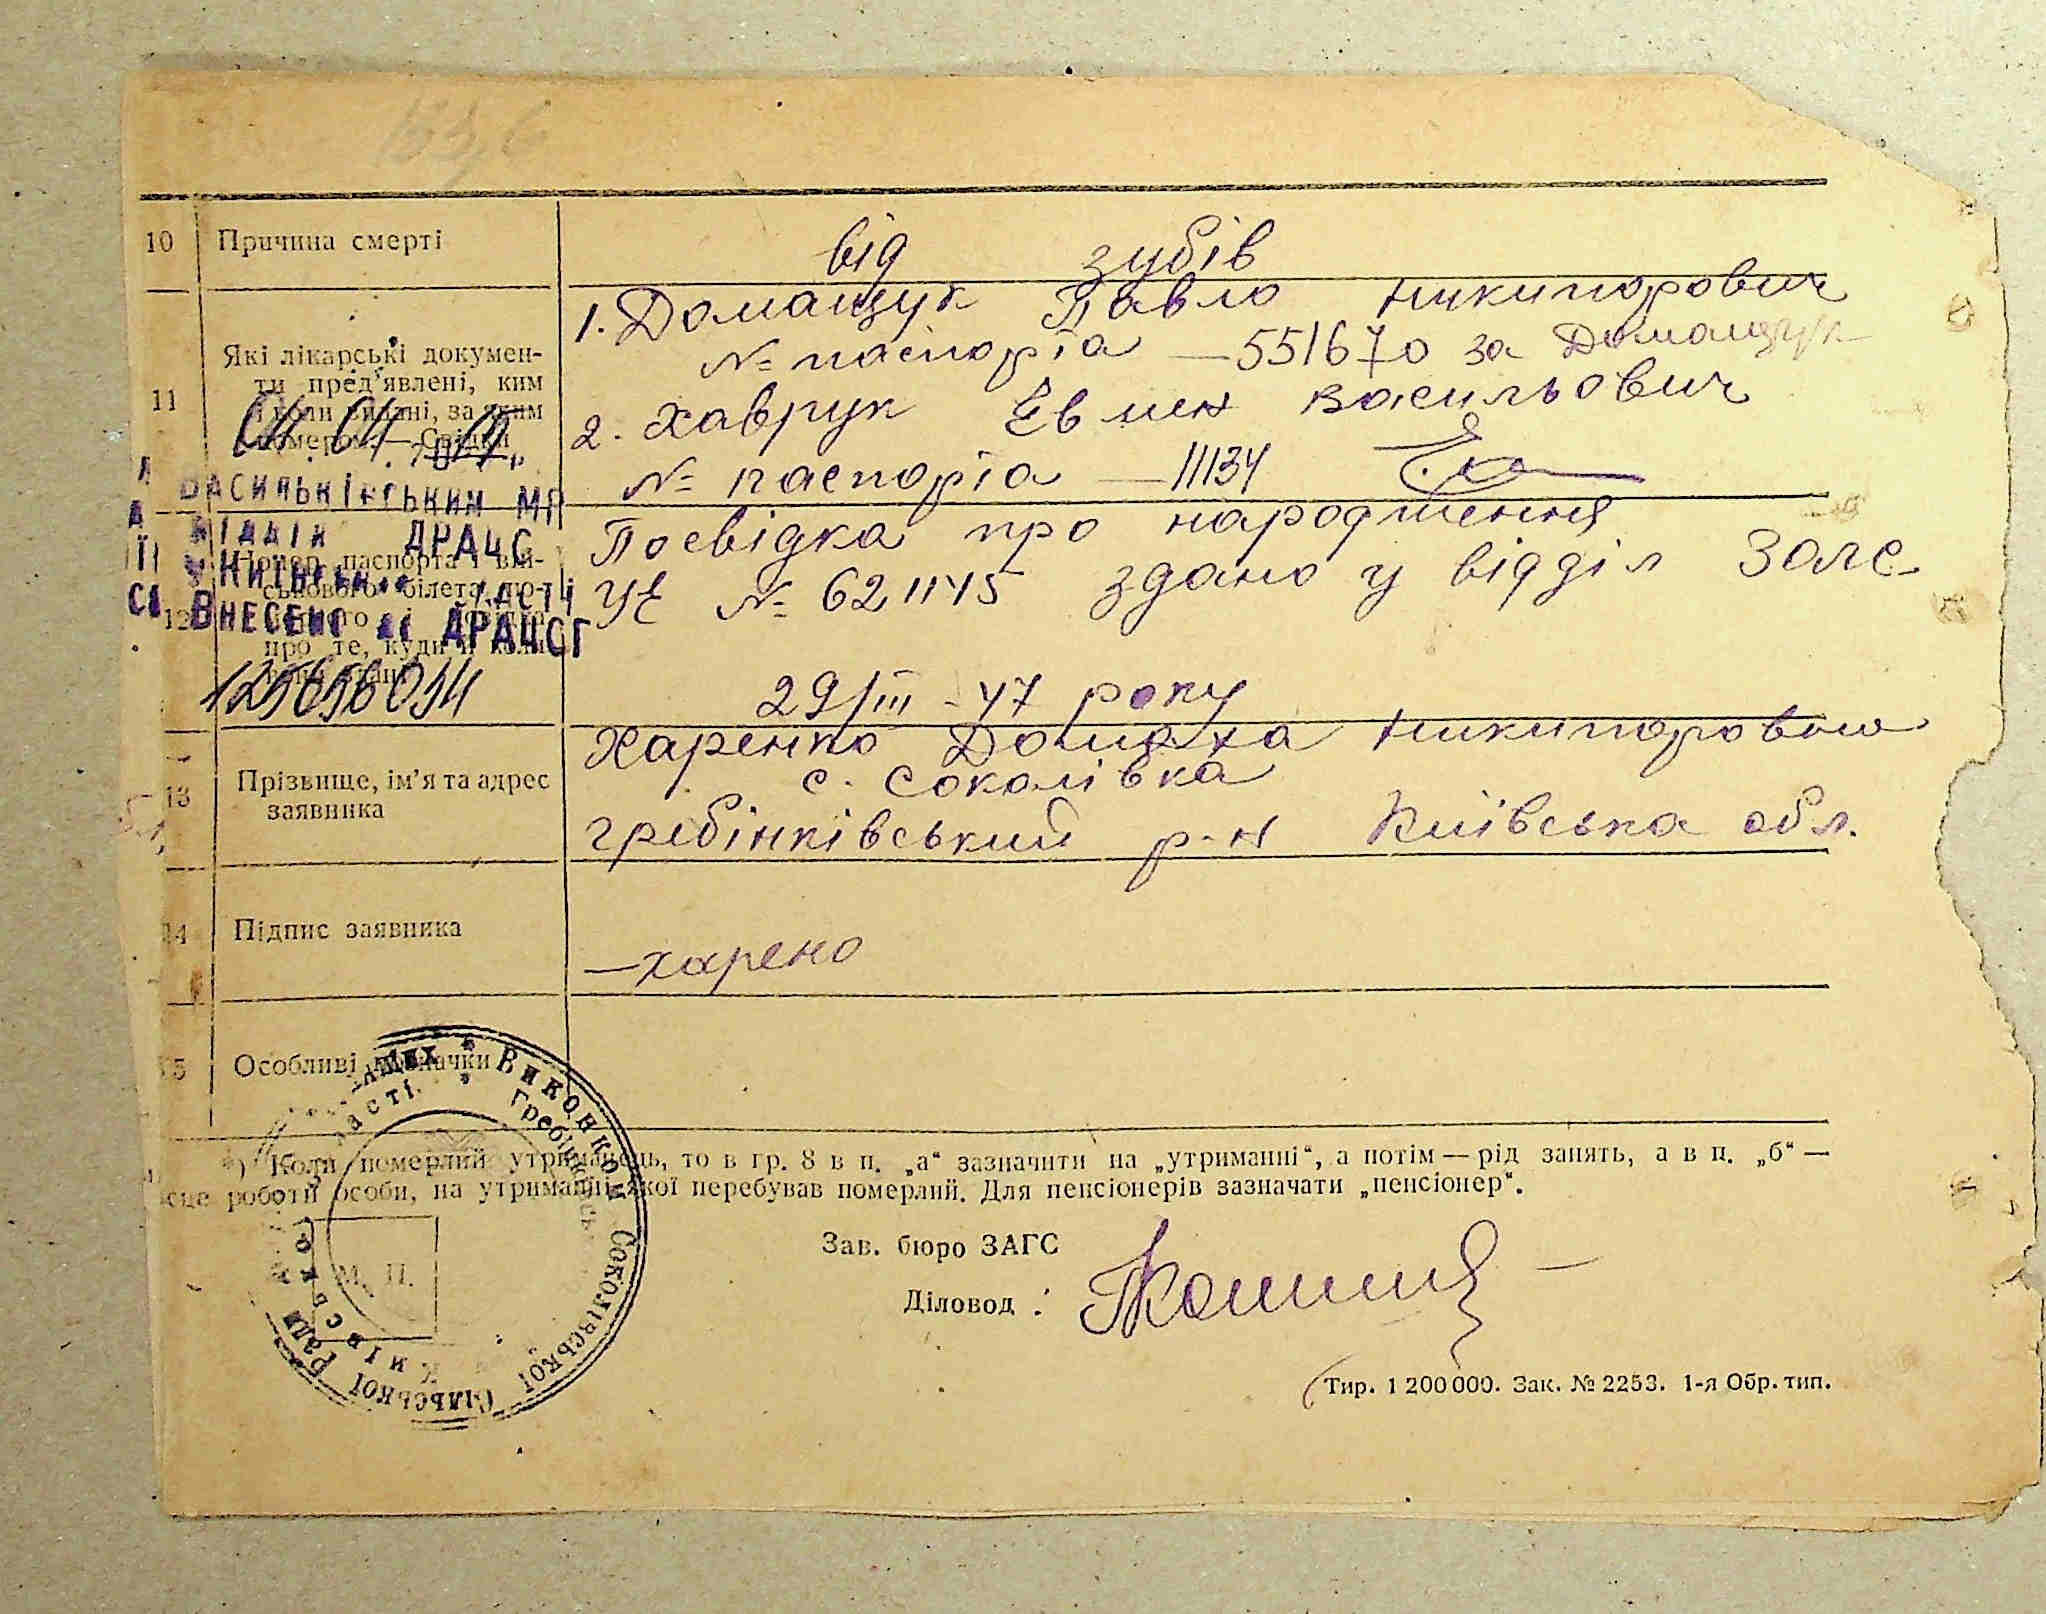 10 Причина смерті
від зубів
11 Які лікарські докумен-
ти пред'явлені, ким
і коли видані, за яким
номером. — Свідки
1. Домащук Павло Никипорович
№ паспорта — 551670 за Домащук
2. Хаврук Евмен Васильович
№ паспорта — 11134
04.04.
ВАСИЛЬКІВСЬКИМ МР
ВІДДІЛ ДРАЦС
ВНЕСЕНО ДО ДРАЦСГ
12 Номер паспорта і вій-
ськового білета
про те, куди й коли
Посвідка про народження
УЄ № 621145 здано у відділ Загс
29/III - 47 року
13 Прізвище, ім'я та адрес
заявника
Харенко Домаха Никипоровна
с. Соколівка
гребінківський р-н Київська обл.
14 Підпис заявника
— харено
15 Особливі позначки
*) Коли померлий утриманець, то в гр. 8 в п. „а“ зазначити на „утриманні“, а потім — рід занять, а в п. „б“ —
місце роботи особи, на утриманні якої перебував померлий. Для пенсіонерів зазначати „пенсіонер“.
Виконком Соколівської Сільської Ради
Гребінківськ Київської області
М. П.
Зав. бюро ЗАГС
Діловод :
Тир. 1 200 000. Зак. № 2253. 1-я Обр. тип.